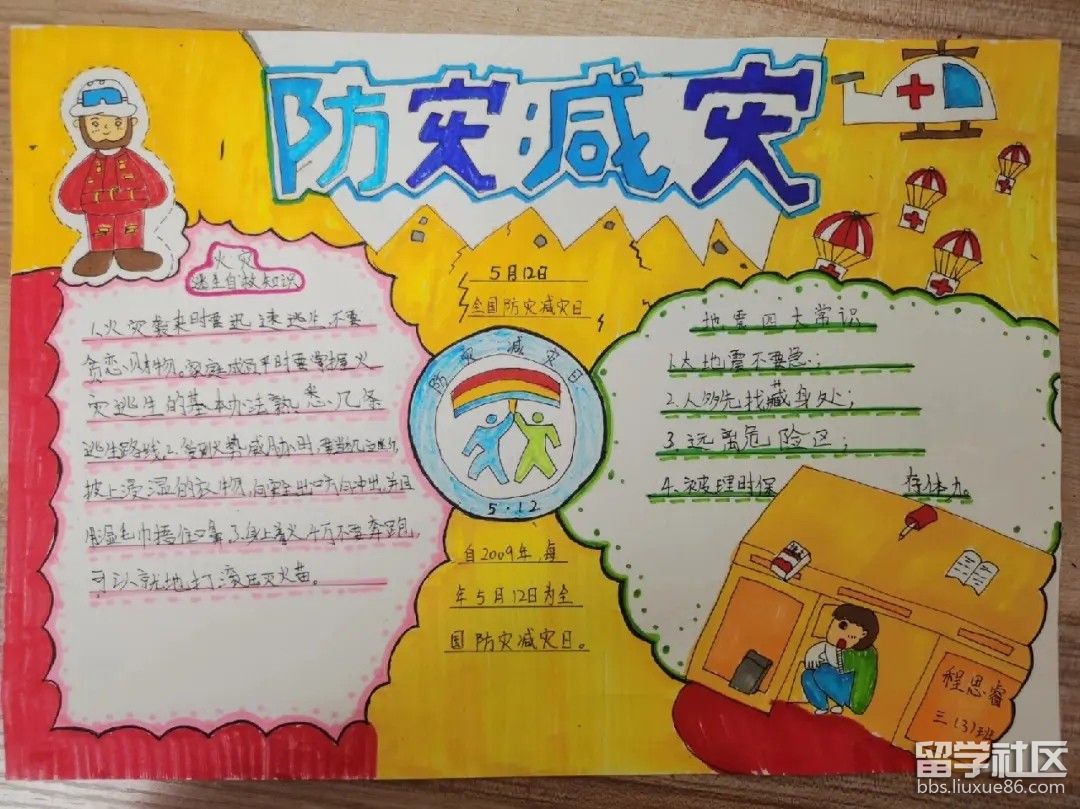 防灾减灾
火灾
逃生自救知识
1.火灾袭来时要迅速逃生,不要
贪恋财物。家庭成员平时要掌握火
灾逃生的基本办法,熟悉几条
逃生路线2.
披上浸湿的衣物,向安全出口方向冲出,并且
用湿毛巾捂住口鼻3.身上着火,千万不要奔跑,
可以就地打滚压灭火苗。
5月12日
全国防灾减灾日
防灾减灾日
5.12
自2009年,每
年5月12日为全
国防灾减灾日。
地震四大常识
1.大地震不要急;
2.人多先找藏身处;
3.远离危险区;
4.被埋时保 存体力。
程思睿
三(3)班
留学社区
bbs.liuxue86.com